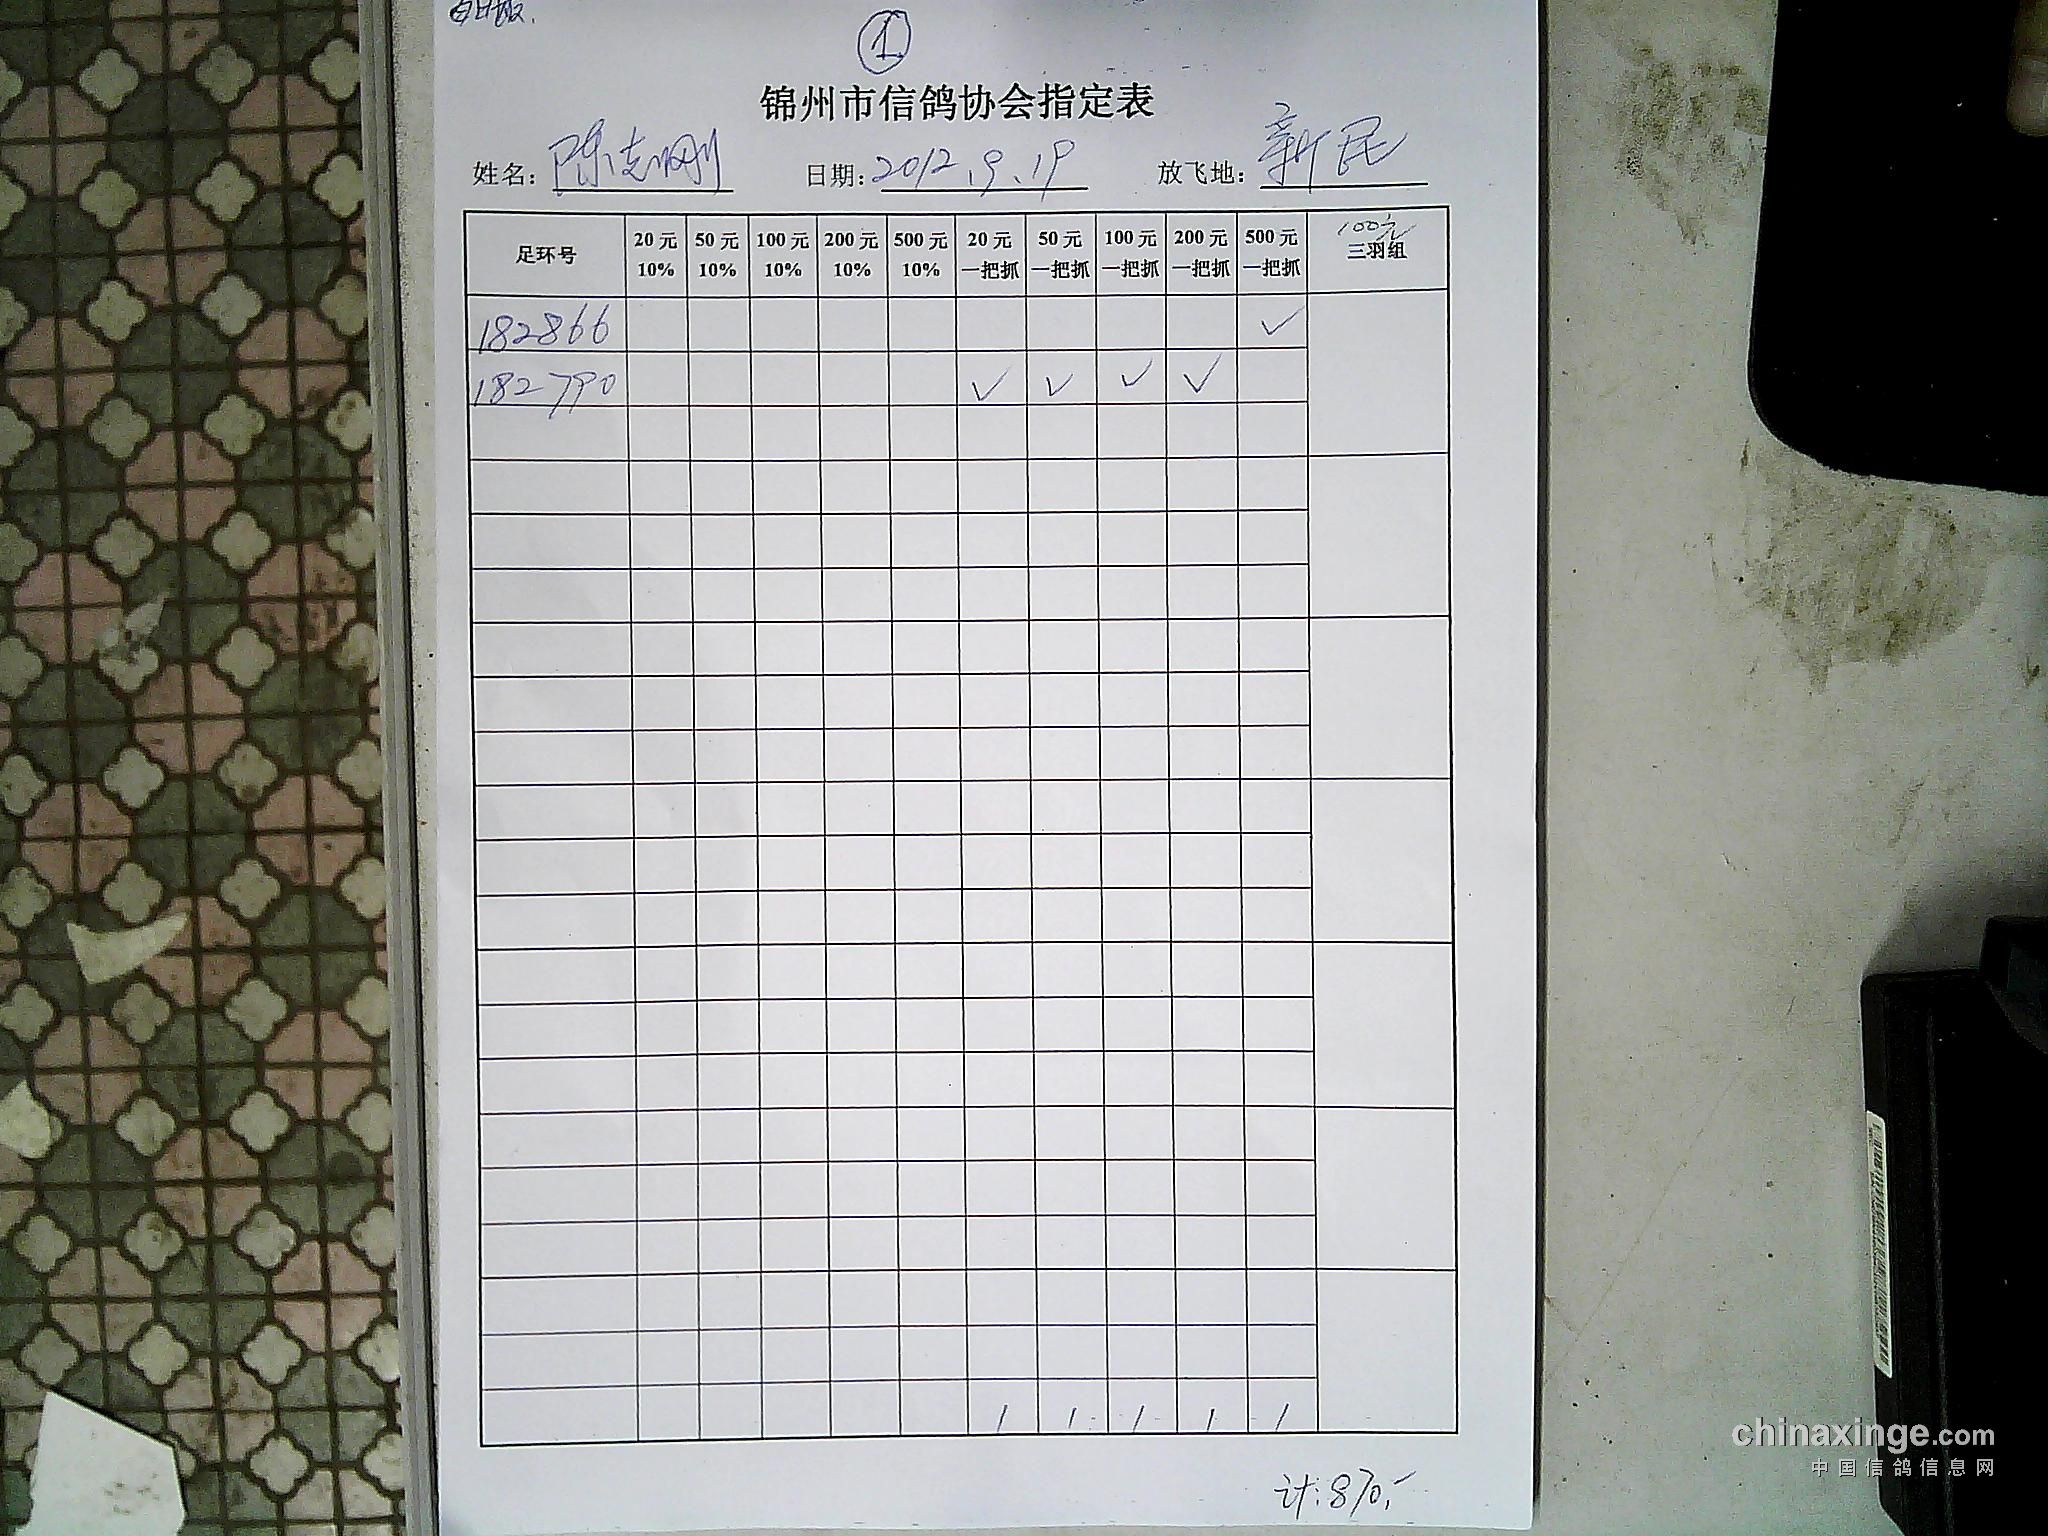 ①
锦州市信鸽协会指定表
姓名: 陈志刚 日期: 2012.9.19 放飞地: 新民
足环号 20元 10% 50元 10% 100元 10% 200元 10% 500元 10% 20元 一把抓 50元 一把抓 100元 一把抓 200元 一把抓 500元 一把抓 100元 三羽组
182866 ✓
182790 ✓ ✓ ✓ ✓
1 1 1 1 1
计:870,-
chinaxinge.com
中国信鸽信息网